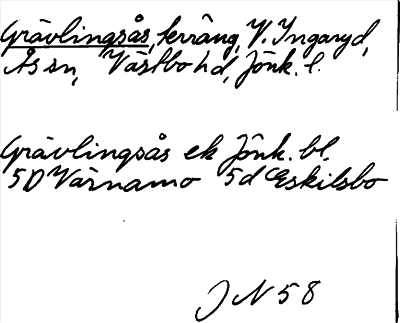 Grävlingsås, terräng, V. Ingaryd,
Ås sn, Västbo hd, Jönk. l.
Grävlingsås ek Jönk. bl.
5D Värnamo 5d Eskilsbo
J N 58